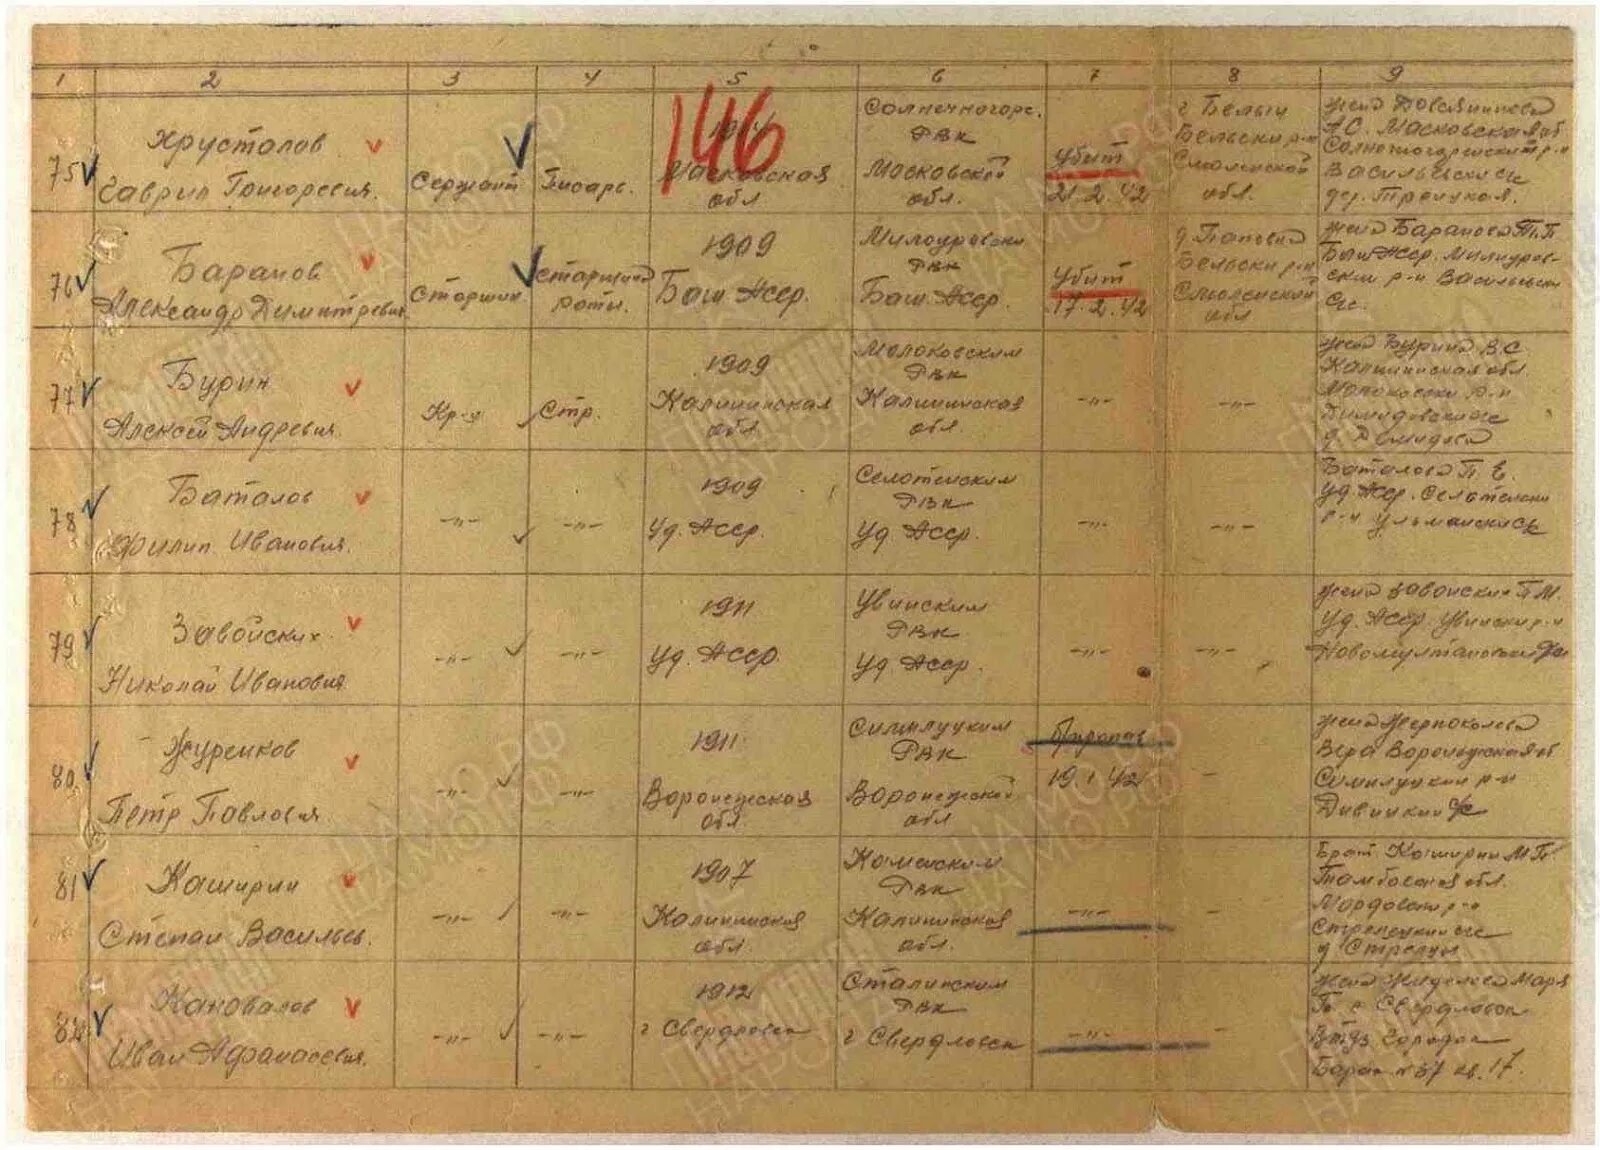 1 2 3 4 5 6 7 8 9
146
75 Хрусталов
Гаврил Григоревич.
Сержант
Писарь.
Масковская
обл
Солнечногорс.
РВК
Масковской
обл.
убит
21.2.42
г Белый
Бельски р-н
Смоленской
обл.
жена
А.С. Масковская об
Солнечногорский р-н
Васильевски с/с
дер. Троицкая.
76 Баранов
Александр Димитревич
Старшин
старшина
роты.
1909
Баш. Асср.
РВК
Баш. Асср.
убит
17.2.42
Бельски р-н
Смоленский
обл
жена Баранова Т.П
Баш Асср.
ский р-н Васильевски
с/с.
77 Бурин
Алексей Андревич.
Кр-ц
Стр.
1909
Калининская
обл.
Молоковским
РВК
Калининская
обл.
-"-
-"-
жена Бурина В.С
Калининская обл.
Молоковски р-н
78 Баталов
Филип Иванович.
-"-
-"-
1909
Уд. Асср.
Селотенским
РВК
Уд. Асср.
-"-
-"-
Баталова П. Е.
Уд Асср. Селотенски
р-н
79 Завойских
Николай Иванович
-"-
-"-
1911
Уд. Асср.
Увинским
РВК
Уд Асср.
-"-
-"-
жена Завойских П.М.
Уд. Асср. Увински р-н
80 Журенков
Петр Павлович.
-"-
-"-
1911.
Воронежская
обл.
Симилуцким
РВК
Воронежской
обл
19.1.42
-
жена
Вера Воронежская об
Симилуцкий р-н
81 Каширин
Степан Васильев.
-"-
-"-
1907
Калининская
обл.
Каменским
РВК
Калининской
обл.
-"-
-
Брат. Каширин М.В.
Тамбовская обл.
Мордовски р-н
Стрелецкий с/с
82 Кановалов
Иван Афанасевич.
-"-
-"-
1912
г Свердловск
Сталинским
РВК
г Свердловск
-"-
-
жена
г Свердловск
Втуз Городок
Барак № 37 кв. 17.